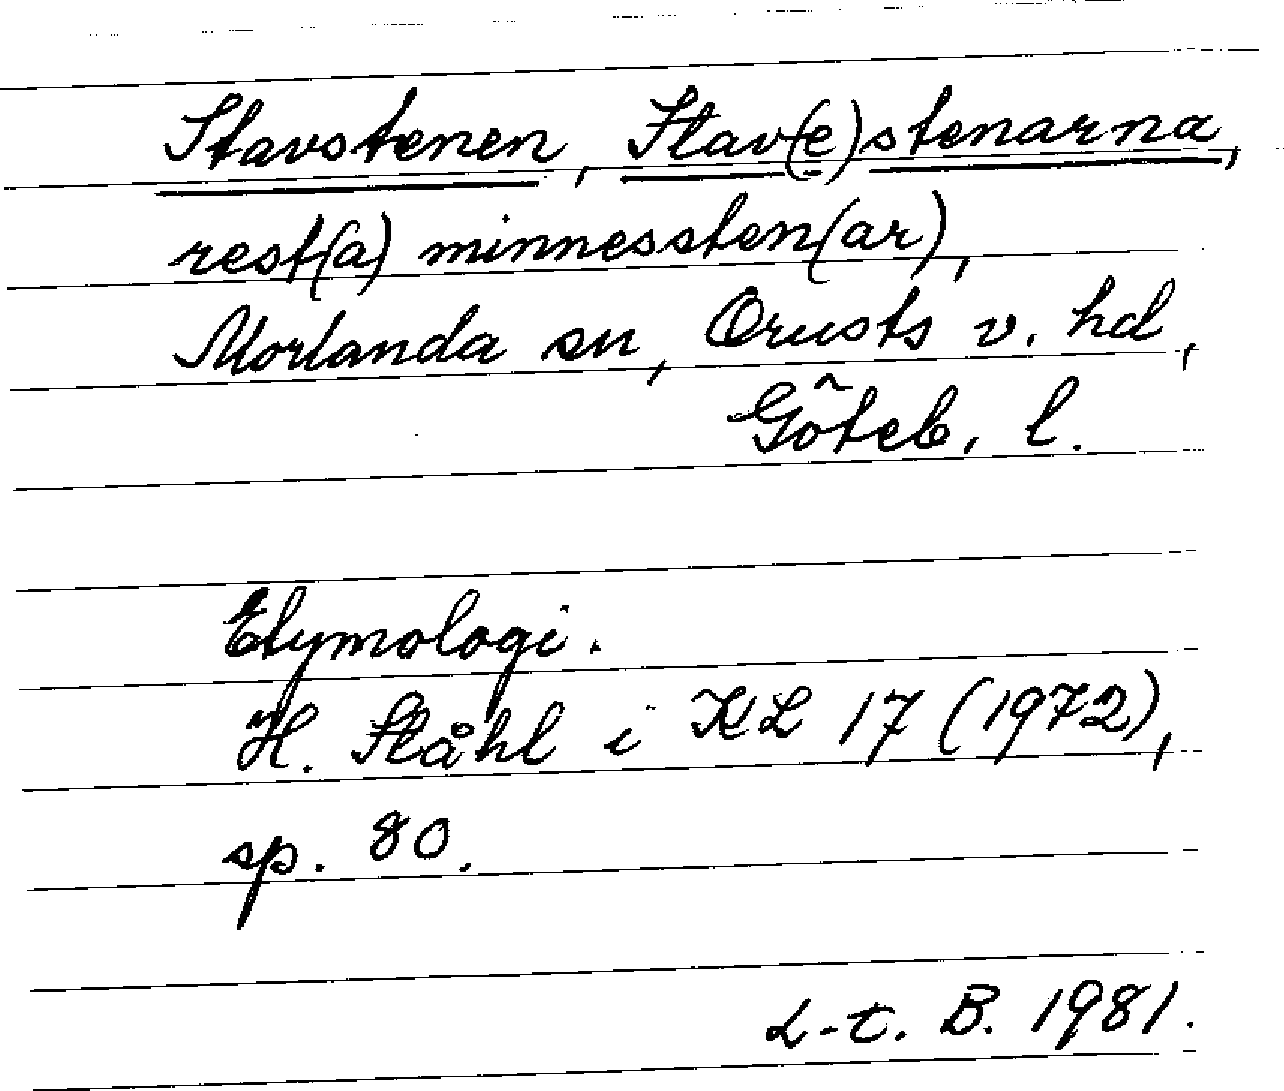 Stavstenen, Stav(e)stenarna,
rest(a) minnessten(ar),
Morlanda sn, Orusts v. hd,
Göteb. l.
Etymologi.
H. Ståhl i KL 17 (1972),
sp. 80.
L-t. B. 1981.